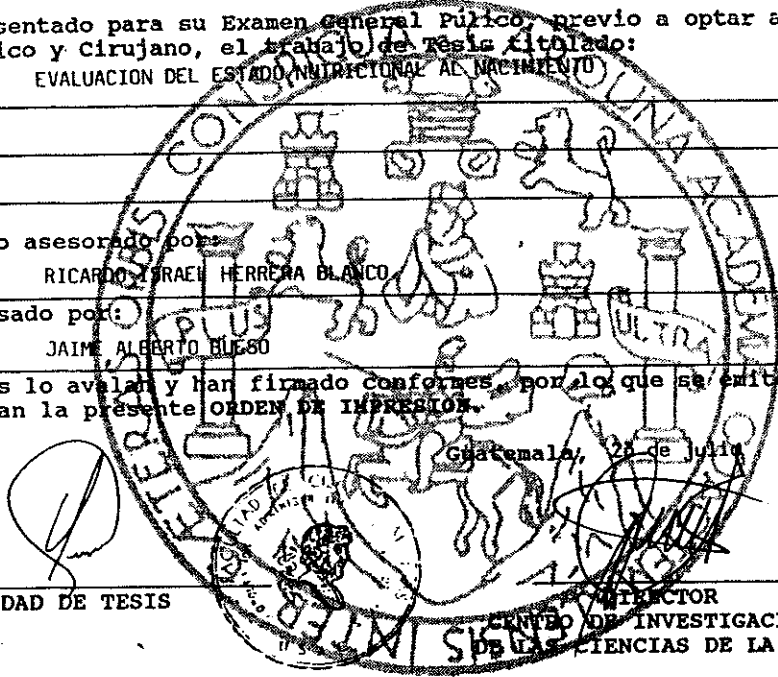 sentado para su Examen General Púlico, previo a optar a
ico y Cirujano, el trabajo de Tesis titulado:
EVALUACION DEL ESTADO NUTRICIONAL AL NACIMIENTO
o asesorado por:
RICARDO ISRAEL HERRERA BLANCO
sado por:
JAIME ALBERTO BUESO
s lo avalan y han firmado conformes, por lo que se emit
an la presente ORDEN DE IMPRESION.
Guatemala, 28 de julio
DAD DE TESIS
DIRECTOR
CENTRO DE INVESTIGAC
DE LAS CIENCIAS DE LA
ORBIS CONSPICUA
ACADEMIA
INTER
PLUS
ULTRA